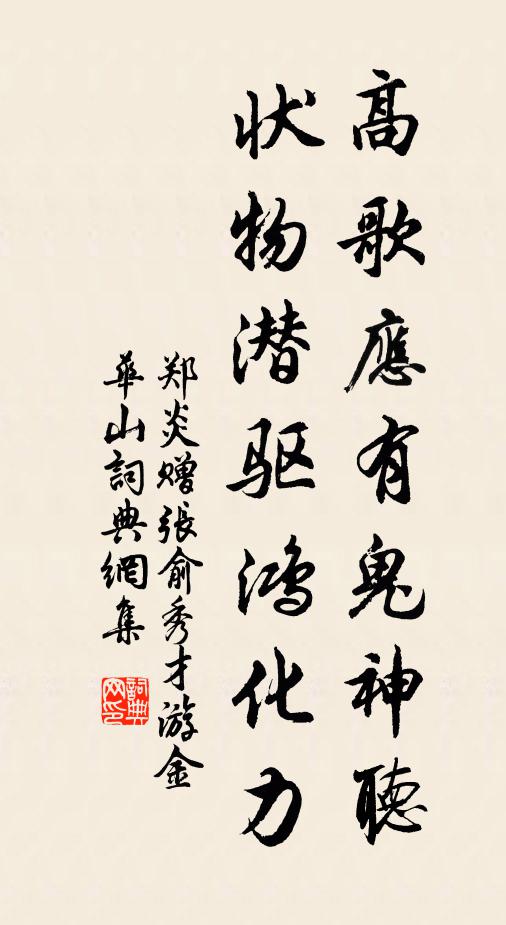 高歌應有鬼神聽
状物潜驱鸿化力
郑炎赠張俞秀才游金
華山詞典網集
詞典
网印